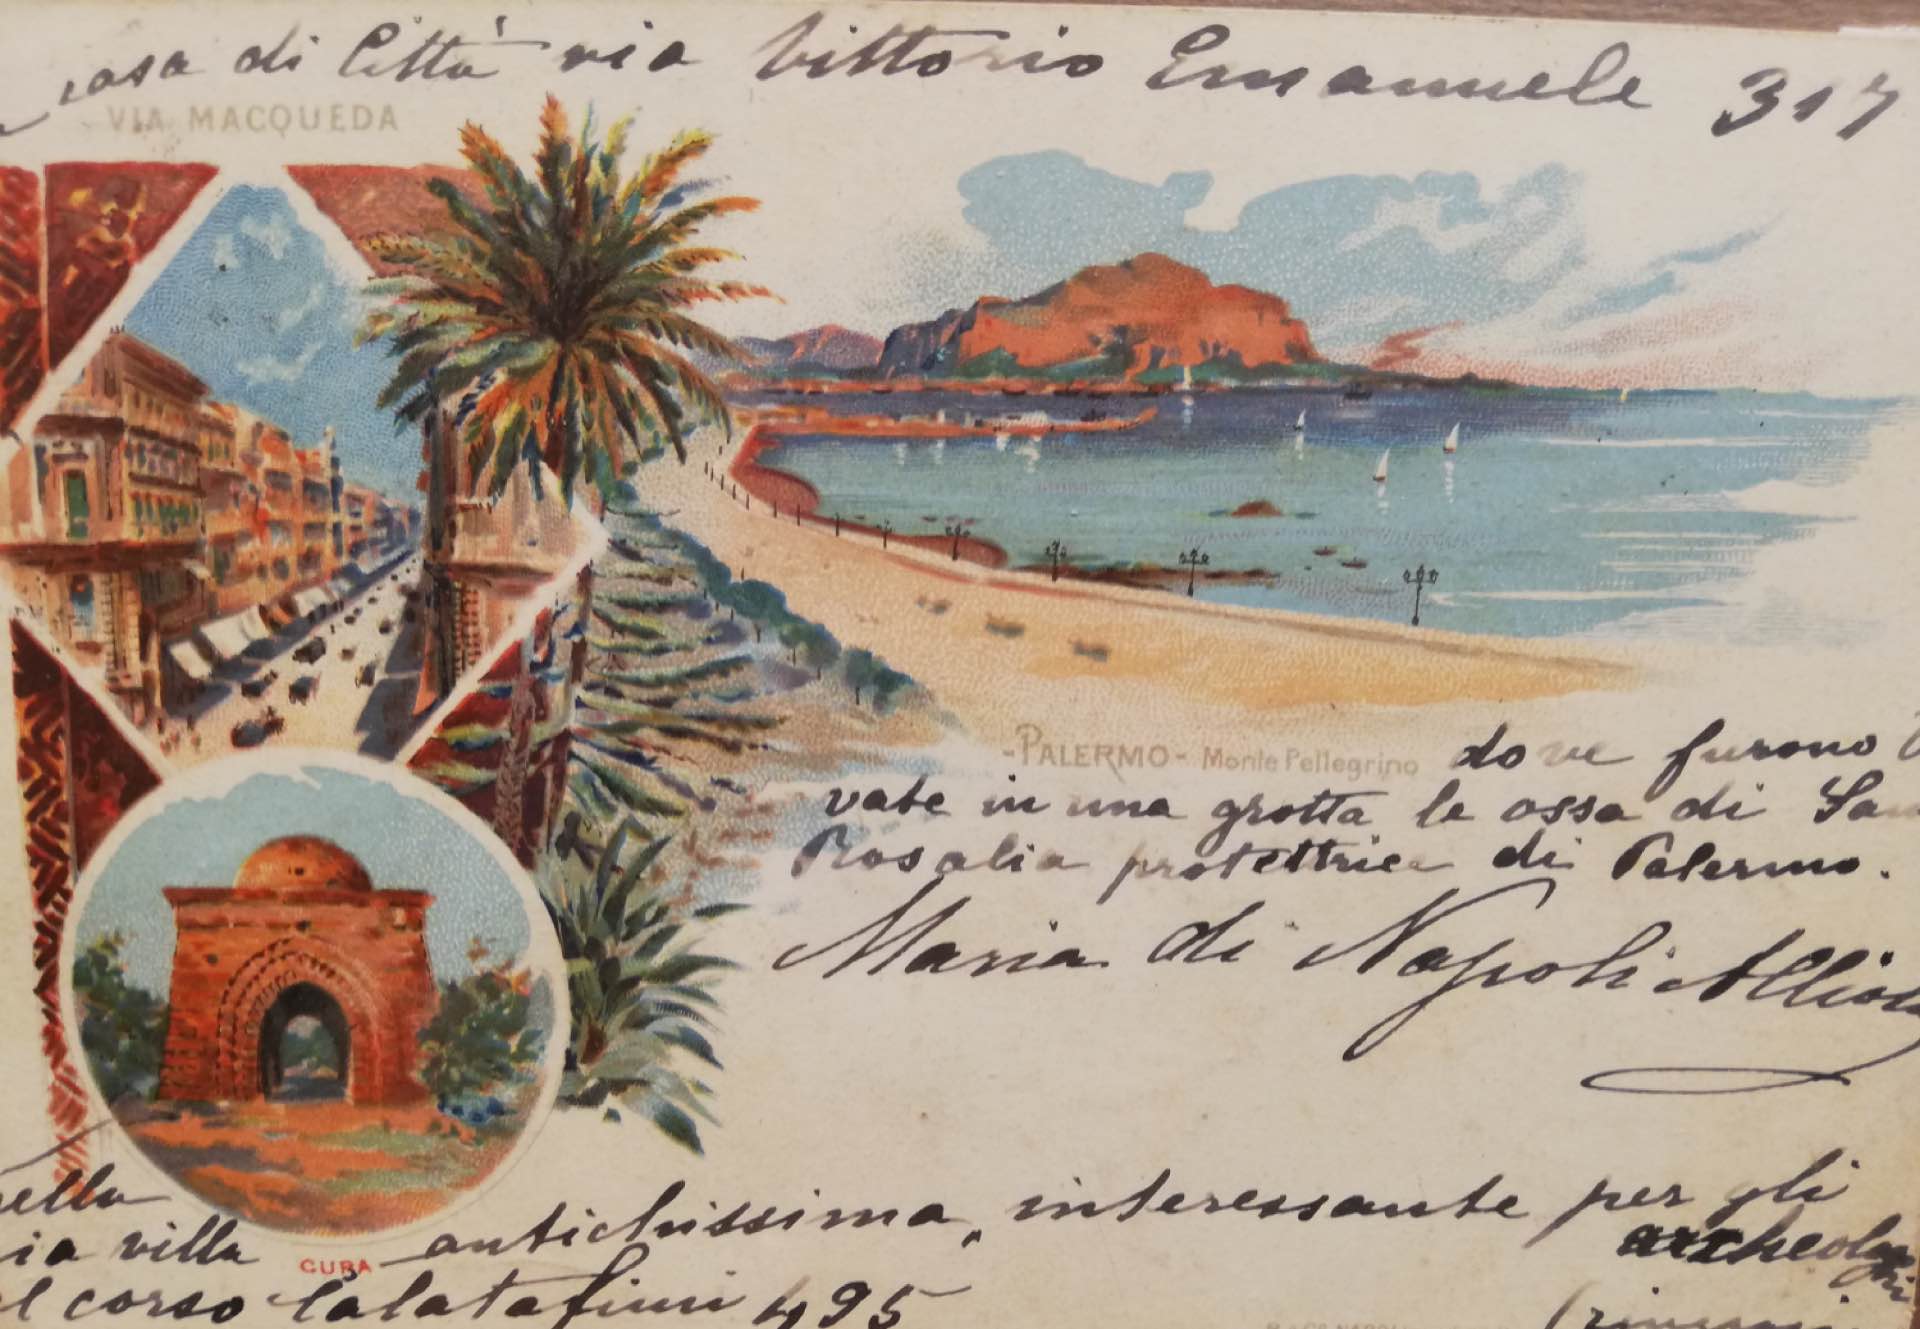 casa di Città via Vittorio Emanuele 317
VIA MACQUEDA
-PALERMO- Monte Pellegrino dove furono
vate in una grotta le ossa di
Rosalia protettrice di Palermo.
Maria di Napoli
villa antichissima, interessante per gli
archeologi
CUBA
corso Calatafimi 495